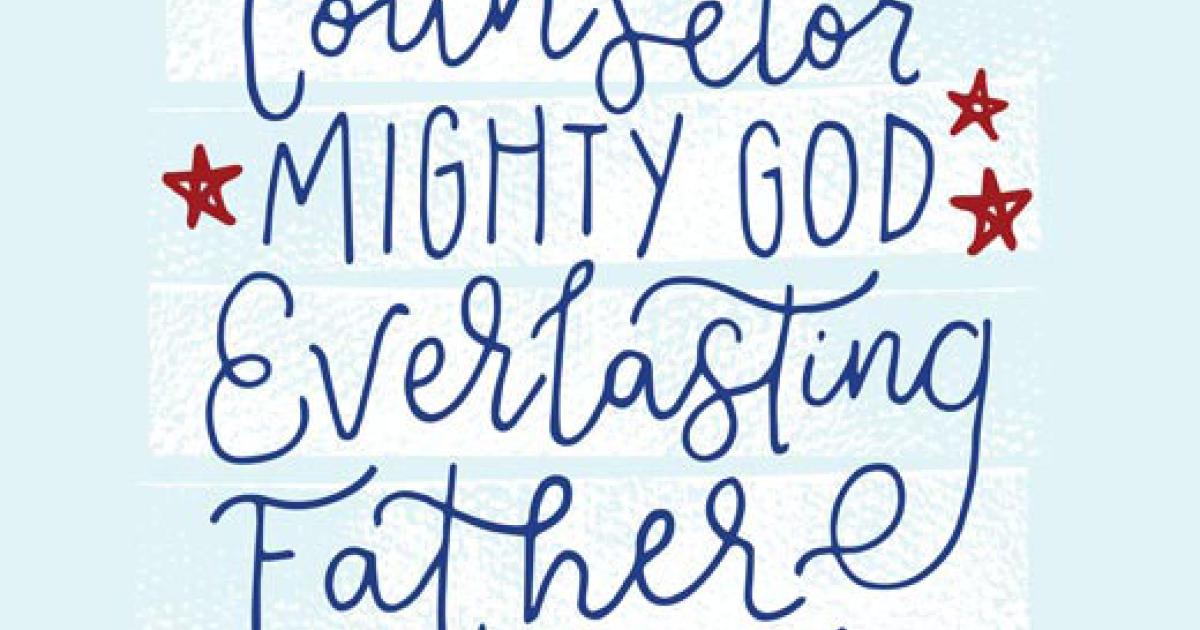 Counselor
MIGHTY GOD
Everlasting
Father